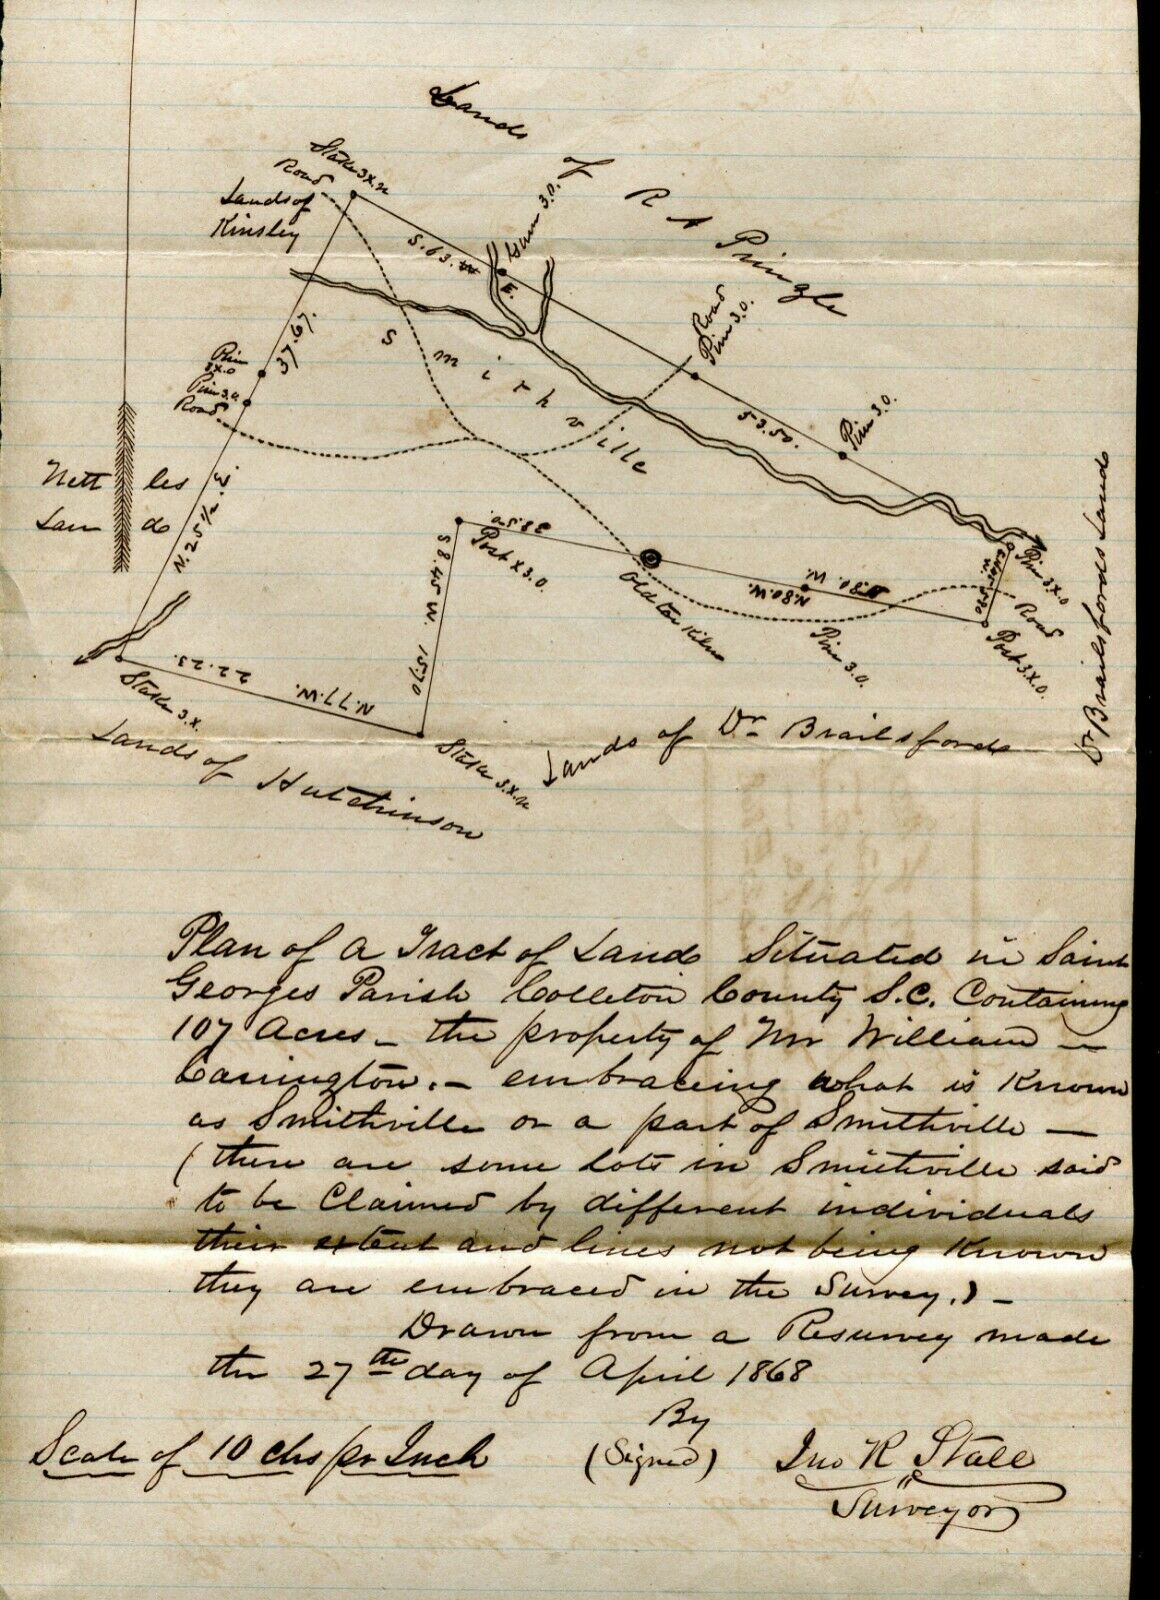 Lands of R A Pringle
Stake 3.X.n
Road
Lands of
Kinsley
S.63.
E.
Gum 3.0.
Road
Pine 3.0.
37.67.
Smithville
Pine
3X.0
Pine 3.
Road
53.50.
Pine 3.0.
Nettles
Land
N.25½.E.
Post X 3.0.
S8.45 W.
15.70
Old Tar Kiln
N.80.W.
Pine 3.0.
Pine 3X.0
Road
Post 3.X.0.
Dr Brailsfords Land
Stake 3.X.
22.23.
N.77.W.
Stake 3.X.n
Lands of Hutchinson
Lands of Dr Brailsfords
Plan of a Tract of Land Situated in Saint
Georges Parish Colleton County S.C. Containing
107 Acres – the property of Mr William –
Carrington. – embraceing what is Known
as Smithville or a part of Smithville —
(there are some lots in Smithville said
to be Claimed by different individuals
their extent and lines not being Known
they are embraced in the Survey.) –
Drawn from a Resurvey made
the 27th day of April 1868
By
Scale of 10 chs pr Inch
(Signed)
Jno R Stall
Surveyor